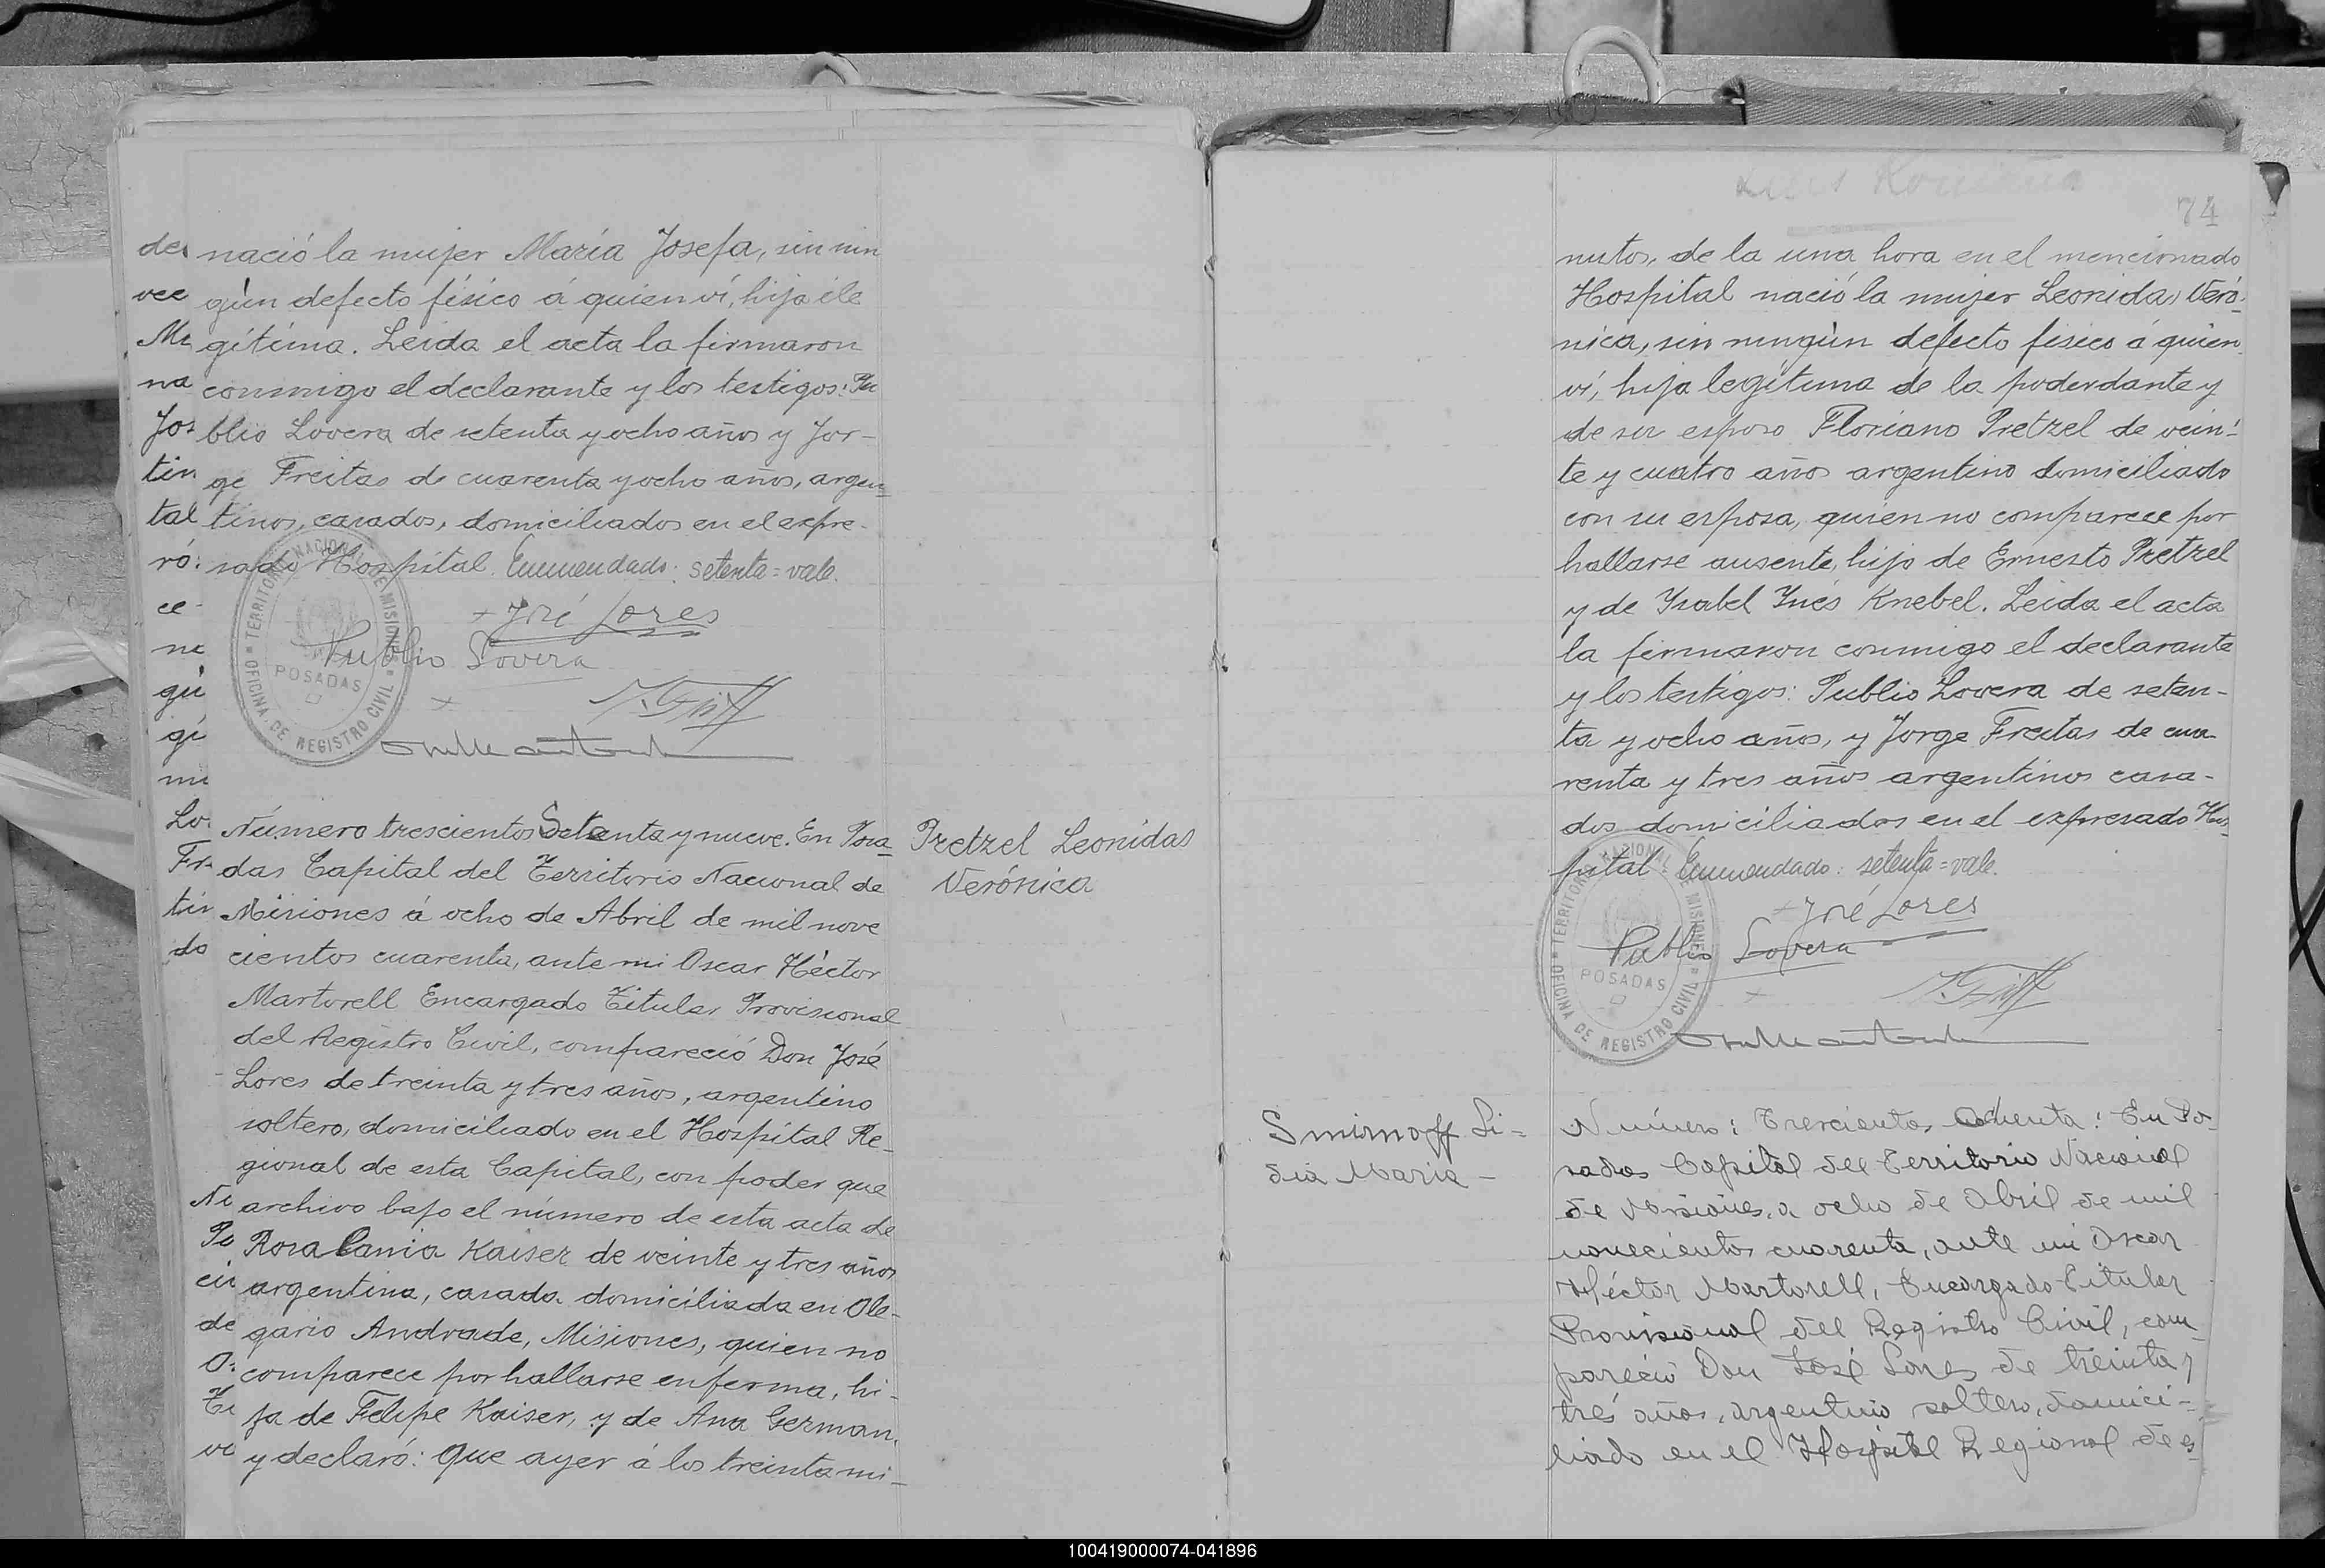 nació la mujer María Josefa, sin nin
gún defecto físico á quien ví, hija ile
gítima. Leida el acta la firmaron
conmigo el declarante y los testigos: Pu
blio Lovera de setenta y ocho años y Jor-
ge Freitas de cuarenta y ocho años, argen
tinos, casados, domiciliados en el expre-
sado Hospital. Enmendado: setenta = vale.
José Lores
Publio Lovera
TERRITORIO NACIONAL DE MISIONES
POSADAS
OFICINA DE REGISTRO CIVIL
Número trescientos Setenta y nueve. En Posa
das Capital del Territorio Nacional de
Misiones á ocho de Abril de mil nove
cientos cuarenta, ante mi Oscar Héctor
Martorell Encargado Titular Provisional
del Registro Civil, compareció Don José
Lores de treinta y tres años, argentino
soltero, domiciliado en el Hospital Re-
gional de esta Capital, con poder que
archivo bajo el número de esta acta de
Rosalania Kaiser de veinte y tres años
argentina, casada domiciliada en Ole-
gario Andrade, Misiones, quien no
comparece por hallarse enferma, hi-
ja de Felipe Kaiser, y de Ana German,
y declaró: Que ayer á los treinta mi-
Pretzel Leonidas
Verónica
74
nutos, de la una hora en el mencionado
Hospital nació la mujer Leonidas Veró-
nica, sin ningún defecto físico á quien
ví, hija legítima de la poderdante y
de su esposo Floriano Pretzel de vein-
te y cuatro años argentino domiciliado
con su esposa, quien no comparece por
hallarse ausente, hijo de Ernesto Pretzel
y de Ysabel Ynés Knebel. Leida el acta
la firmaron conmigo el declarante
y los testigos: Publio Lovera de seten-
ta y ocho años, y Jorge Freitas de cua
renta y tres años argentinos casa-
dos domiciliados en el expresado Hos-
pital Enmendado: setenta = vale.
José Lores
Publio Lovera
TERRITORIO NACIONAL DE MISIONES
POSADAS
OFICINA DE REGISTRO CIVIL
Smirnoff Li-
dia María -
Número: Trescientos Ochenta: En Po-
sadas Capital del Territorio Nacional
de Misiones, a ocho de Abril de mil
novecientos cuarenta, ante mi Oscar
Héctor Martorell, Encargado Titular
Provisional del Registro Civil, com-
pareció Don José Lores de treinta y
tres años, argentino soltero, domici-
liado en el Hospital Regional de es
100419000074-041896